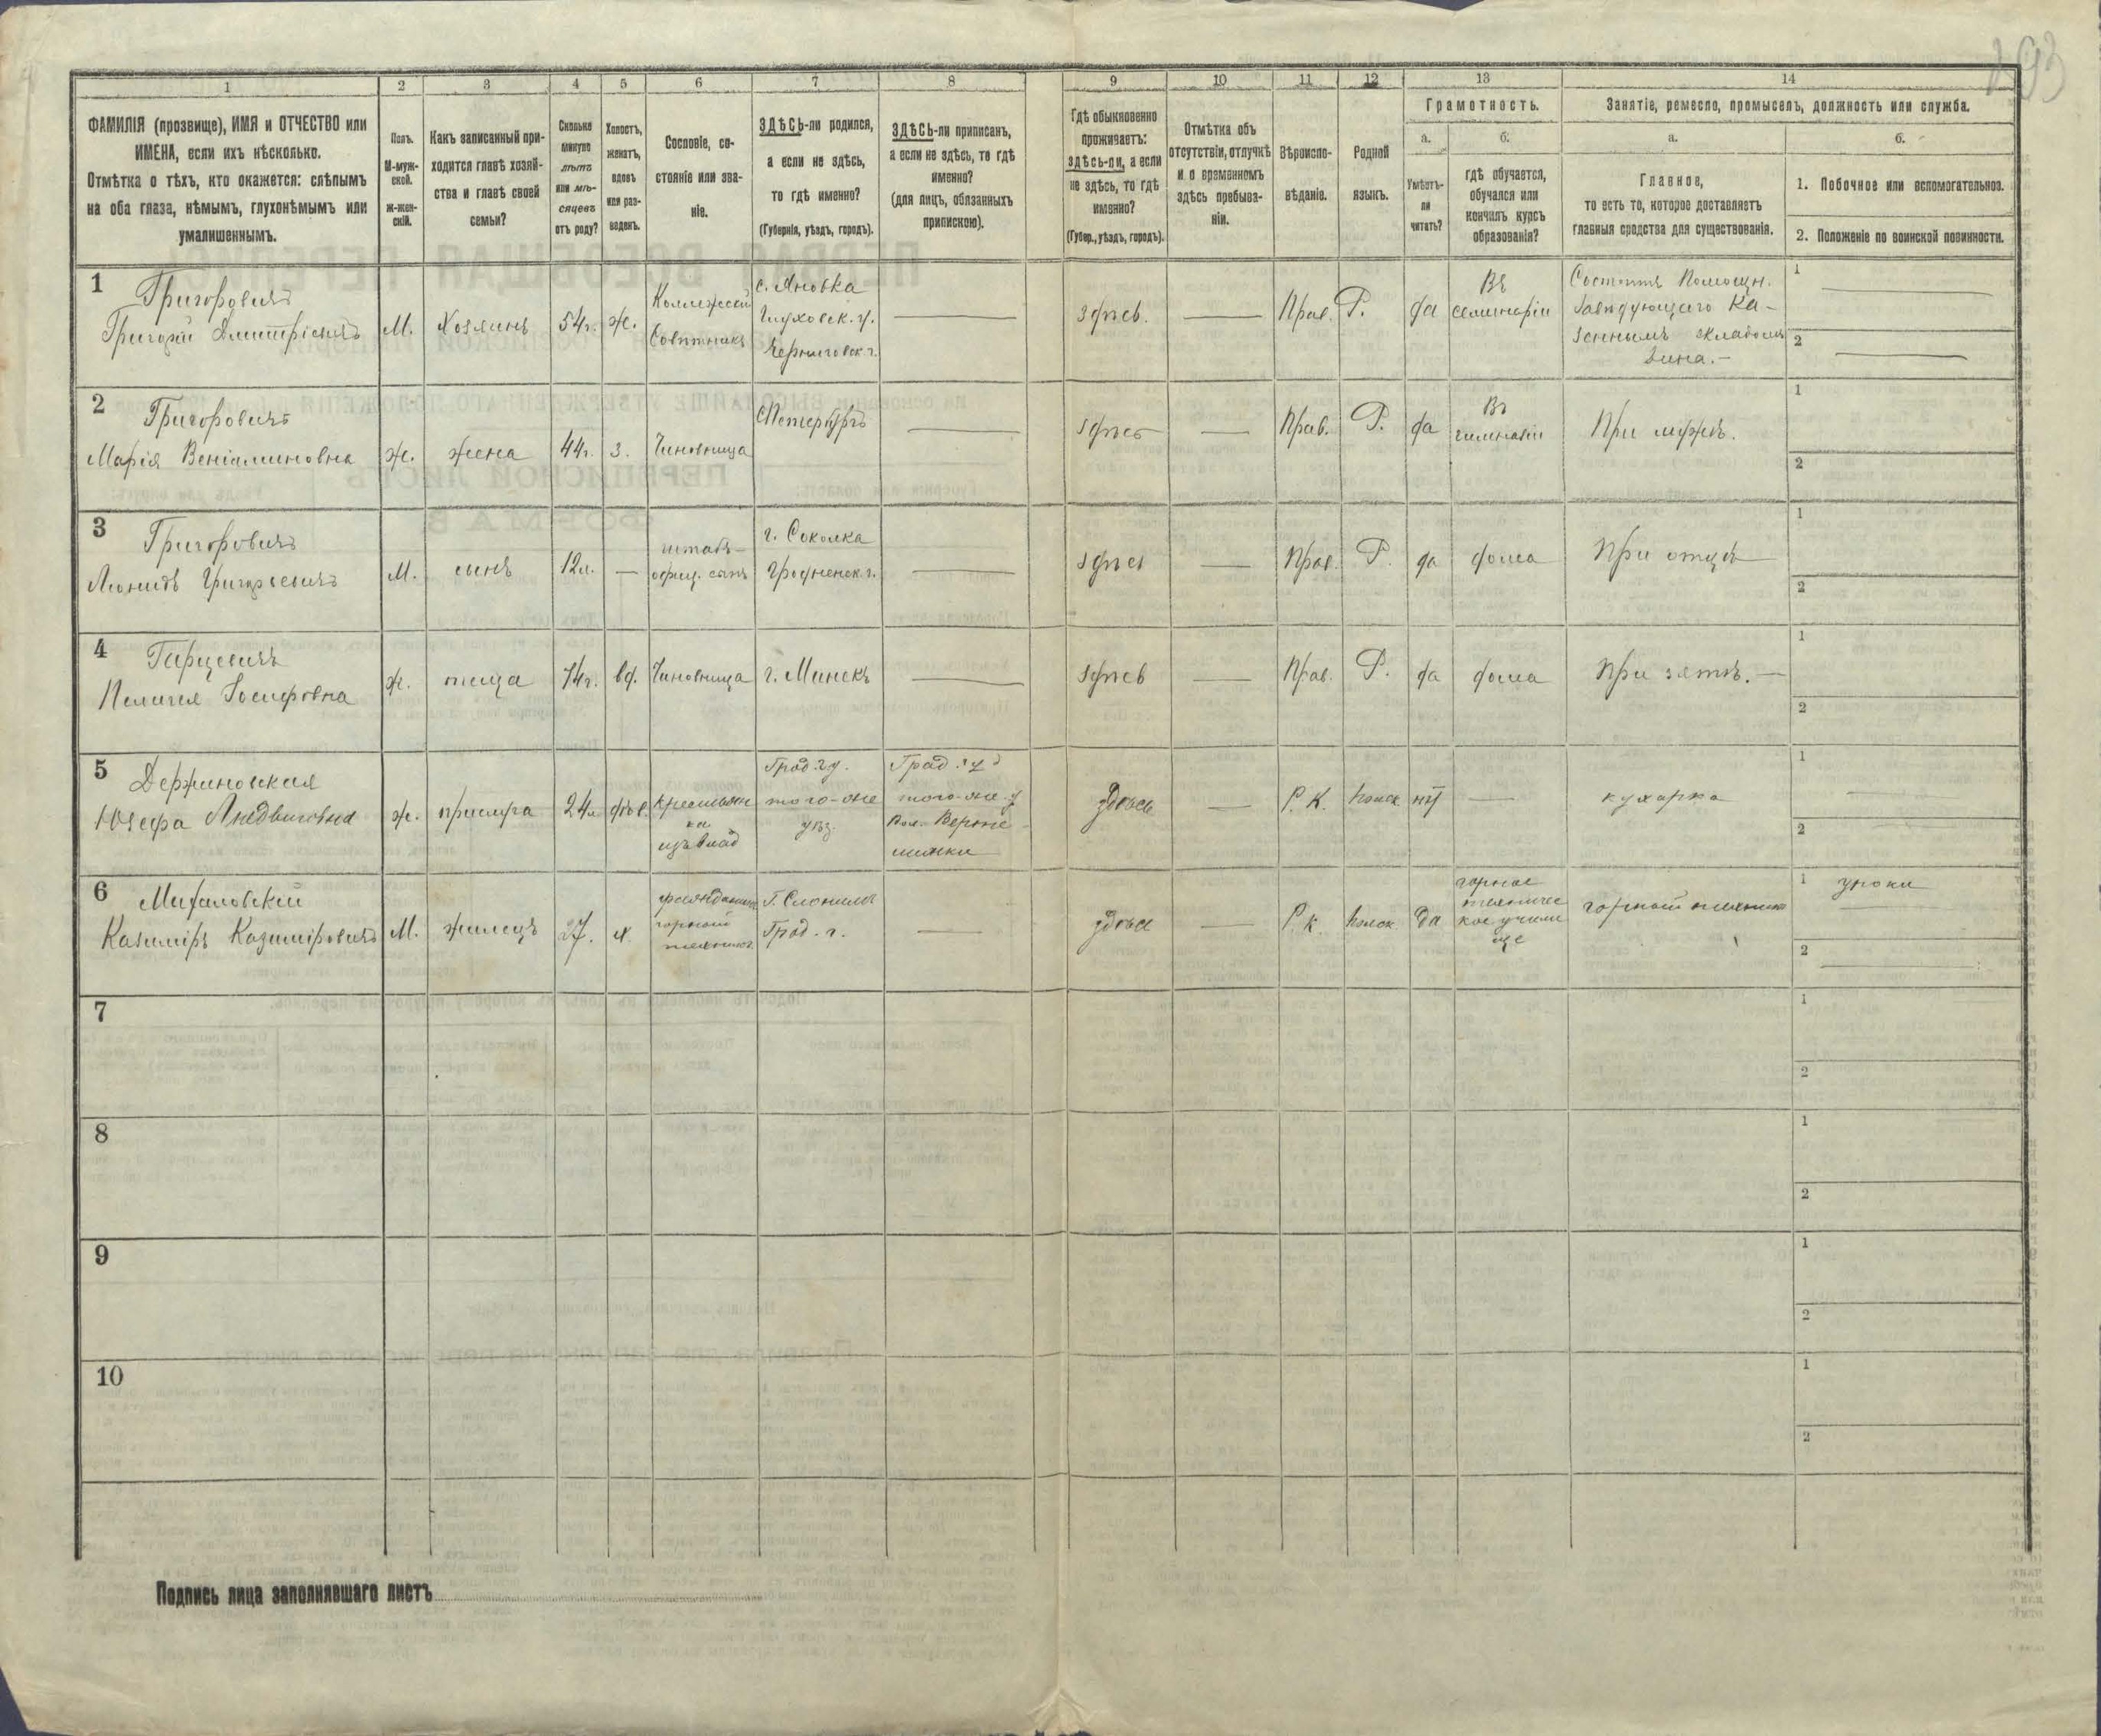 193
1
2
3
4
5
6
7
8
9
10
11
12
13
14
ФАМИЛІЯ (прозвище), ИМЯ и ОТЧЕСТВО или
ИМЕНА, если ихъ нѣсколько.
Отмѣтка о тѣхъ, кто окажется: слѣпымъ
на оба глаза, нѣмымъ, глухонѣмымъ или
умалишеннымъ.
Полъ.
М-муж-
ской.
Ж-жен-
скій.
Какъ записанный при-
ходится главѣ хозяй-
ства и главѣ своей
семьи?
Сколько
минуло
лѣтъ
или мѣ-
сяцевъ
отъ роду?
Холостъ,
женатъ,
вдовъ
или раз-
веденъ.
Сословіе, со-
стояніе или зва-
ніе.
ЗДѢСЬ-ли родился,
а если не здѣсь,
то гдѣ именно?
(Губернія, уѣздъ, городъ).
ЗДѢСЬ-ли приписанъ,
а если не здѣсь, то гдѣ
именно?
(для лицъ, обязанныхъ
припискою).
Гдѣ обыкновенно
проживаетъ:
здѣсь-ли, а если
не здѣсь, то гдѣ
именно?
(Губер., уѣздъ, городъ).
Отмѣтка объ
отсутствіи, отлучкѣ
и о временномъ
здѣсь пребыва-
ніи.
Вѣроиспо-
вѣданіе.
Родной
языкъ.
Грамотность.
а.
Умѣетъ-
ли
читать?
б.
гдѣ обучается,
обучался или
кончилъ курсъ
образованія?
Занятіе, ремесло, промыселъ, должность или служба.
а.
Главное,
то есть то, которое доставляетъ
главныя средства для существованія.
б.
1. Побочное или вспомогательное.
2. Положеніе по воинской повинности.
1
Григоровичъ
Григорій Дмитріевичъ
М.
Хозяинъ
54г.
ж.
Коллежскій
Совѣтникъ
с. Яновка
Глуховск. у.
Черниговск. г.
здѣсь.
Прав.
Р.
да
Въ
семинаріи
Состоитъ Помощн.
Завѣдующаго Ка-
зеннымъ складомъ
Вина.-
1
2
2
Григоровичъ
Марія Веніаминовна
ж.
жена
44г.
з.
Чиновница
С Петербургъ
здѣсь
Прав.
Р.
да
Въ
гимназіи
При мужѣ.
1
2
3
Григоровичъ
Леонидъ Григорьевичъ
М.
сынъ
12л.
штабъ-
офиц. сынъ
г. Соколка
Гродненск. г.
здѣсь
Прав.
Р.
да
дома
При отцѣ
1
2
4
Пелагея Іосифовна
ж.
теща
74г.
вд.
Чиновница
г. Минскъ
здѣсь
Прав.
Р.
да
дома
При зятѣ.-
1
2
5
Юзефа Людвиговна
ж.
прислуга
24л
дѣв.
крестьян
ка
изъ влад
Грод. г.у.
того-же
уѣз.
Грод. г у
того-же у
Вол. Верте-
лишки
здѣсь
Р. К.
польск
нѣтъ
кухарка
1
2
6
Казиміръ Казиміровичъ
М.
жилецъ
27.
х.
горный
техникъ
Г. Слонимъ
Грод. г.
здѣсь
Р. К.
польск
да
горное
техничес
кое учили
ще
горный техникъ
1
уроки
2
7
1
2
8
1
2
9
1
2
10
1
2
Подпись лица заполнявшаго листъ